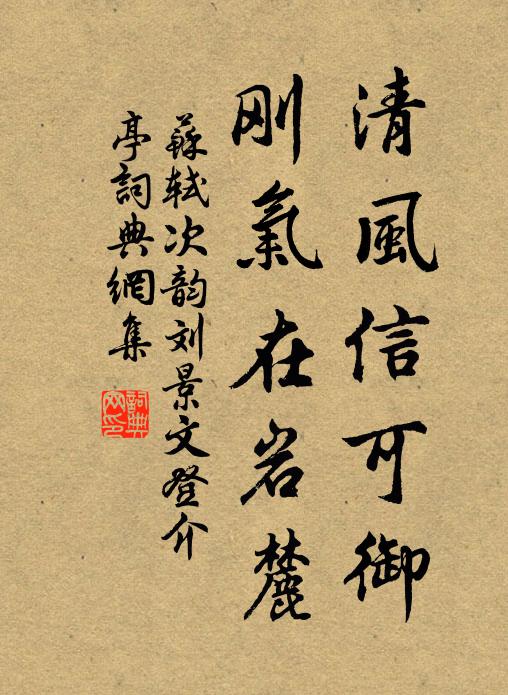 清風信可御
刚氣在岩麓
蘇軾次韵刘景文登介
亭詞典網集
詞典
网印